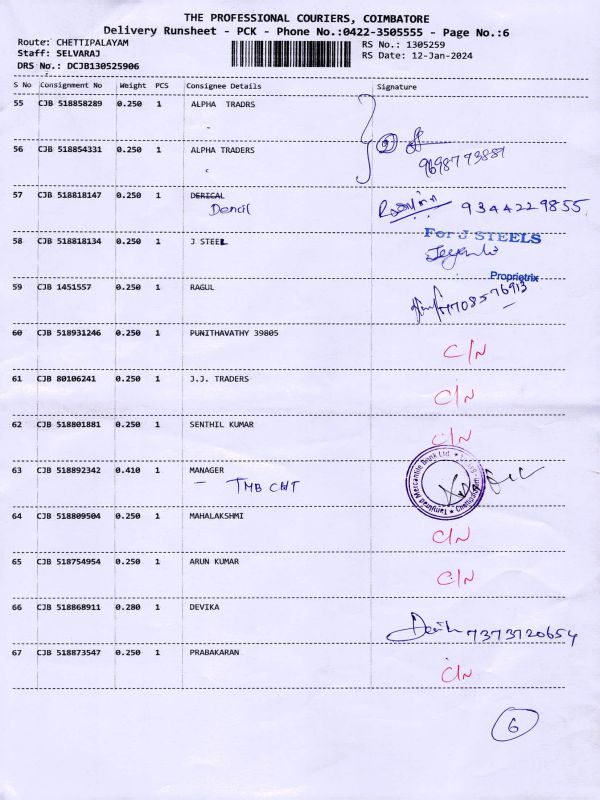 THE PROFESSIONAL COURIERS, COIMBATORE
Delivery Runsheet - PCK - Phone No.:0422-3505555 - Page No.:6
Route: CHETTIPALAYAM
RS No.: 1305259
Staff: SELVARAJ
RS Date: 12-Jan-2024
DRS No.: DCJB130525906
S No Consignment No Weight PCS Consignee Details Signature
55 CJB 518858289 0.250 1 ALPHA TRADRS
56 CJB 518854331 0.250 1 ALPHA TRADERS
② 9698773887
57 CJB 518818147 0.250 1 DERICAL
Dencil
9344229855
58 CJB 518818134 0.250 1 J STEEL
For J STEELS
Proprietrix
59 CJB 1451557 0.250 1 RAGUL
7708576913
60 CJB 518931246 0.250 1 PUNITHAVATHY 39805
C/N
61 CJB 80106241 0.250 1 J.J. TRADERS
C/N
62 CJB 518801881 0.250 1 SENTHIL KUMAR
C/N
63 CJB 518892342 0.410 1 MANAGER
- TMB CHT
Tamilnad Mercantile Bank Ltd.
64 CJB 518809504 0.250 1 MAHALAKSHMI
C/N
65 CJB 518754954 0.250 1 ARUN KUMAR
C/N
66 CJB 518868911 0.280 1 DEVIKA
7373720654
67 CJB 518873547 0.250 1 PRABAKARAN
C/N
6